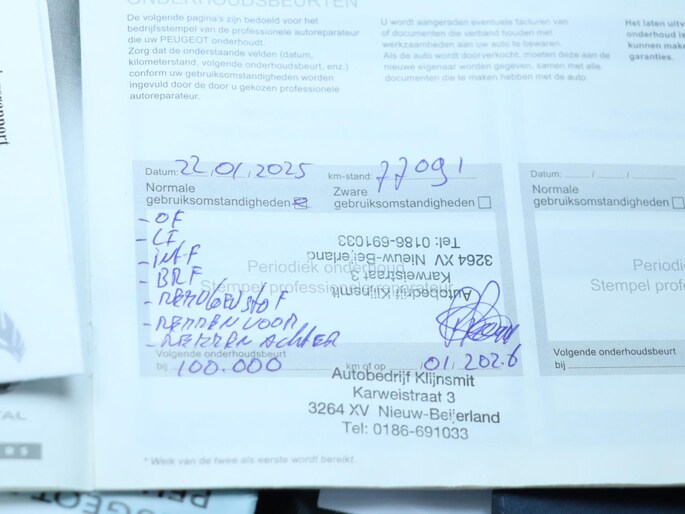 ONDERHOUDSBEURTEN
De volgende pagina's zijn bedoeld voor het
bedrijfsstempel van de professionele autoreparateur
die uw PEUGEOT onderhoudt.
Zorg dat de onderstaande velden (datum,
kilometerstand, volgende onderhoudsbeurt, enz.)
conform uw gebruiksomstandigheden worden
ingevuld door de door u gekozen professionele
autoreparateur.
U wordt aangeraden eventuele facturen van
of documenten die verband houden met
werkzaamheden aan uw auto te bewaren.
Als de auto wordt doorverkocht, moeten deze aan de
nieuwe eigenaar worden gegeven, samen met alle
documenten die te maken hebben met de auto.
Het laten uitv
onderhoud is
kunnen make
garanties.
Datum: 22.01.2025 km-stand: 77091
Normale gebruiksomstandigheden
Zware gebruiksomstandigheden
- OF
- LF
- INT F
- BRF
- REMVLOEISTOF
- REMMEN VOOR
- REMMEN ACHTER
Periodiek onderhoud
Stempel professionele reparateur
Autobedrijf Klijnsmit
Karweistraat 3
3264 XV Nieuw-Beijerland
Tel: 0186-691033
Volgende onderhoudsbeurt
bij 100.000 km of op 01.2026
Autobedrijf Klijnsmit
Karweistraat 3
3264 XV Nieuw-Beijerland
Tel: 0186-691033
* Welk van de twee als eerste wordt bereikt.
Datum: / /
Normale
gebruiksomstandigheden
Periodi
Stempel prof
Volgende onderhoudsbeurt
bij
PEUGEOT